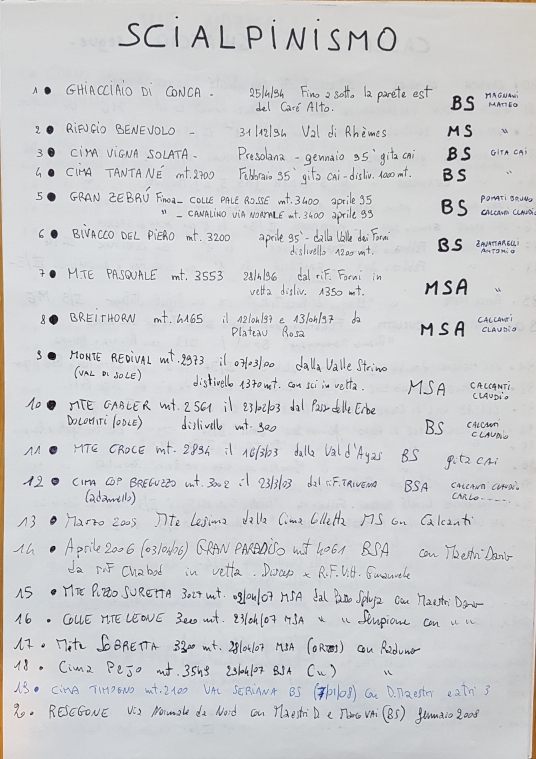 SCIALPINISMO
1 ● GHIACCIAIO DI CONCA - 25/4/94 Fino a sotto la parete est BS MAGNANI
del Caré Alto. MATTEO
2 ● RIFUGIO BENEVOLO - 31/12/94 Val di Rhèmes MS "
3 ● CIMA VIGNA SOLATA - Presolana - gennaio 95' gita CAI BS GITA CAI
4 ● CIMA TANTANÉ mt. 2700 Febbraio 95' gita CAI - disliv. 1000 mt. BS "
5 ● GRAN ZEBRÚ Fino a - COLLE PALE ROSSE mt. 3400 aprile 95 BS POMATI BRUNO
" - CANALINO VIA NORMALE mt. 3400 aprile 99 CALCANTI CLAUDIO
6 ● BIVACCO DEL PIERO mt. 3200 aprile 95' - dalla Valle dei Forni BS ZAVATTARELLI
dislivello 1200 mt. ANTONIO
7 ● MTE PASQUALE mt. 3553 28/4/96 dal rif. Forni in MSA "
vetta disliv. 1350 mt.
8 ● BREITHORN mt. 4165 il 12/04/97 e 13/04/97 da MSA CALCANTI
Plateau Rosa CLAUDIO
9 ● MONTE REDIVAL mt. 2973 il 07/03/00 dalla Valle Strino
(VAL DI SOLE) dislivello 1370 mt. con sci in vetta. MSA CALCANTI
CLAUDIO
10 ● MTE GABLER mt. 2561 il 23/02/03 dal Passo delle Erbe
DOLOMITI (ODLE) dislivello mt. 900 BS CALCANTI
CLAUDIO
11 ● MTE CROCE mt. 2894 il 16/3/03 dalla Val d'Ayas BS gita CAI
12 ● CIMA COP BREGUZZO mt. 3002 il 23/3/03 dal r.f. TRIVENA BSA CALCANTI CLAUDIO
(adamello) CARLO ------
13 ● Marzo 2005 Mte Lesima dalla Cima Colletta MS con Calcanti
14 ● Aprile 2006 (03/04/06) GRAN PARADISO mt 4061 BSA con Maestri Dario
da rif Chabod in vetta. Discesa x R.F. Vitt. Emanuele
15 ● MTE PIZZO SURETTA 3027 mt. 09/04/07 MSA dal Passo Spluga con Maestri Dario
16 ● COLLE MTE LEONE 3200 mt. 23/04/07 MSA " " Sempione con " "
17 ● Monte SOBRETTA 3300 mt. 28/04/07 MSA (ORTLES) con Raduno
18 ● Cima Pejo mt. 3549 29/04/07 BSA (") "
19 ● CIMA TIMOGNO mt. 2100 VAL SERIANA BS (7/01/08) con D. Maestri e altri 3
20 ● RESEGONE Via Normale da Nord con Maestri D. e Marco VAI (BS) gennaio 2008